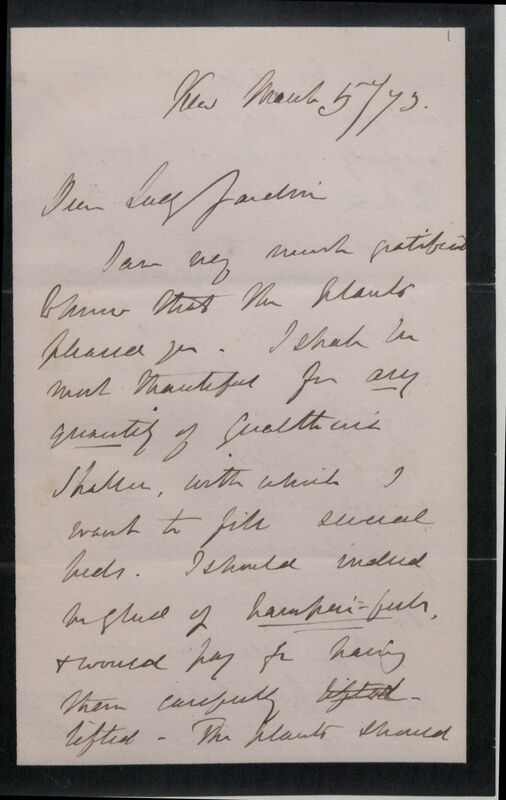 1
Kew March 5/73.
Dear Lady Jardine
I am very much gratified
to know that the plants
pleased you. I shall be
most thankful for any
quantity of Gualtheria
Shallon, with which I
want to fill several
beds. I should indeed
be glad of hampers-full,
& would pay for having
them carefully lifted
lifted - The plants should